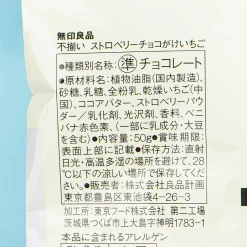 無印良品
不揃い ストロベリーチョコがけいちご
●種類別名称／㊤準チョコレート
●原材料名／植物油脂(国内製造)、
砂糖、乳糖、全粉乳、乾燥いちご(中
国)、ココアバター、ストロベリーパウ
ダー／乳化剤、光沢剤、香料、ベニ
バナ赤色素、(一部に乳成分・大豆
を含む)●内容量／50g●賞味期限／
表面上部に記載●保存方法／直射
日光・高温多湿の場所を避けて、28
℃以下の涼しい場所で保存してくだ
さい。●販売者／株式会社良品計画
東京都豊島区東池袋
加工所／東京フード株式会社 第二工場
茨城県つくば市上大島字神明1193
本品に含まれるアレルゲン